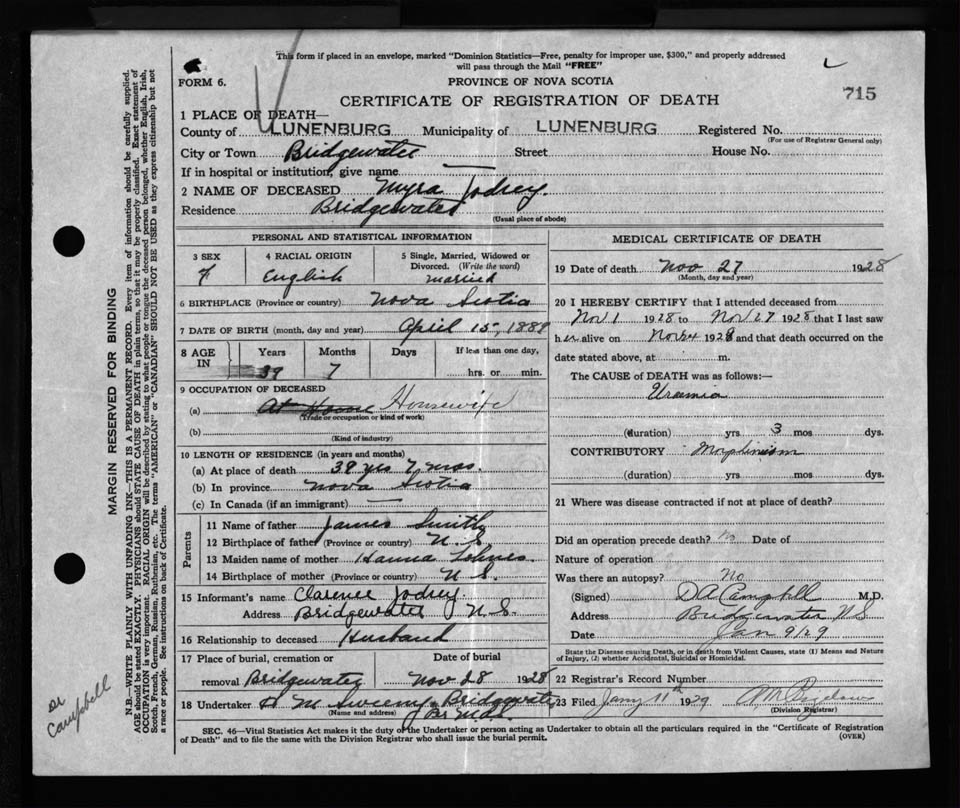 This form if placed in an envelope, marked "Dominion Statistics—Free, penalty for improper use, $300," and properly addressed
will pass through the Mail "FREE"
FORM 6.
PROVINCE OF NOVA SCOTIA
CERTIFICATE OF REGISTRATION OF DEATH
715
1 PLACE OF DEATH—
County of LUNENBURG Municipality of LUNENBURG Registered No.
(For use of Registrar General only)
City or Town Bridgewater Street House No.
If in hospital or institution, give name —
2 NAME OF DECEASED Myra Jodrey.
Residence Bridgewater
(Usual place of abode)
PERSONAL AND STATISTICAL INFORMATION
3 SEX 4 RACIAL ORIGIN 5 Single, Married, Widowed or
Divorced. (Write the word)
f English married
6 BIRTHPLACE (Province or country) Nova Scotia
7 DATE OF BIRTH (month, day and year) April 15, 1889
8 AGE IN Years Months Days If less than one day,
39 7 hrs. or min.
9 OCCUPATION OF DECEASED
(a) At Home Housewife
(Trade or occupation or kind of work)
(b)
(Kind of industry)
10 LENGTH OF RESIDENCE (in years and months)
(a) At place of death 39 yrs 7 mos.
(b) In province Nova Scotia
(c) In Canada (if an immigrant) —
Parents
11 Name of father James Smith
12 Birthplace of father (Province or country) N. S.
13 Maiden name of mother Hanna Lohnes
14 Birthplace of mother (Province or country) N S.
15 Informant's name Clarence Jodrey.
Address Bridgewater N. S.
16 Relationship to deceased Husband
17 Place of burial, cremation or Date of burial
removal Bridgewater Nov 28 1928
18 Undertaker Sweeny Bridgewater
(Name and address)
MEDICAL CERTIFICATE OF DEATH
19 Date of death Nov 27 1928
(Month, day and year)
20 I HEREBY CERTIFY that I attended deceased from
Nov 1 1928 to Nov 27 1928 that I last saw
her alive on Nov 1928 and that death occurred on the
date stated above, at m.
The CAUSE of DEATH was as follows:—
Uraemia
(duration) yrs 3 mos dys.
CONTRIBUTORY Morphinism
(duration) yrs mos dys.
21 Where was disease contracted if not at place of death?
Did an operation precede death? no Date of
Nature of operation
Was there an autopsy? No
(Signed) D A Campbell M.D.
Address Bridgewater N S
Date Jan 9/29
State the Disease causing Death, or in death from Violent Causes, state (1) Means and Nature
of Injury, (2) whether Accidental, Suicidal or Homicidal.
22 Registrar's Record Number
23 Filed Jany 11th 1929
(Division Registrar)
SEC. 46—Vital Statistics Act makes it the duty of the Undertaker or person acting as Undertaker to obtain all the particulars required in the "Certificate of Registration
of Death" and to file the same with the Division Registrar who shall issue the burial permit.
(OVER)
MARGIN RESERVED FOR BINDING
N.B.—WRITE PLAINLY WITH UNFADING INK—THIS IS A PERMANENT RECORD. Every item of information should be carefully supplied.
AGE should be stated EXACTLY. PHYSICIANS should STATE CAUSE OF DEATH in plain terms, so that it may be properly classified. Exact statement of
OCCUPATION is very important. RACIAL ORIGIN will be described by stating to what people or tongue the deceased person belonged, whether English, Irish,
Scotch, French, German, Russian, Ruthenian, etc. The terms "AMERICAN" or "CANADIAN" SHOULD NOT BE USED as they express citizenship but not
a race or people. See instructions on back of Certificate.
Dr
Campbell